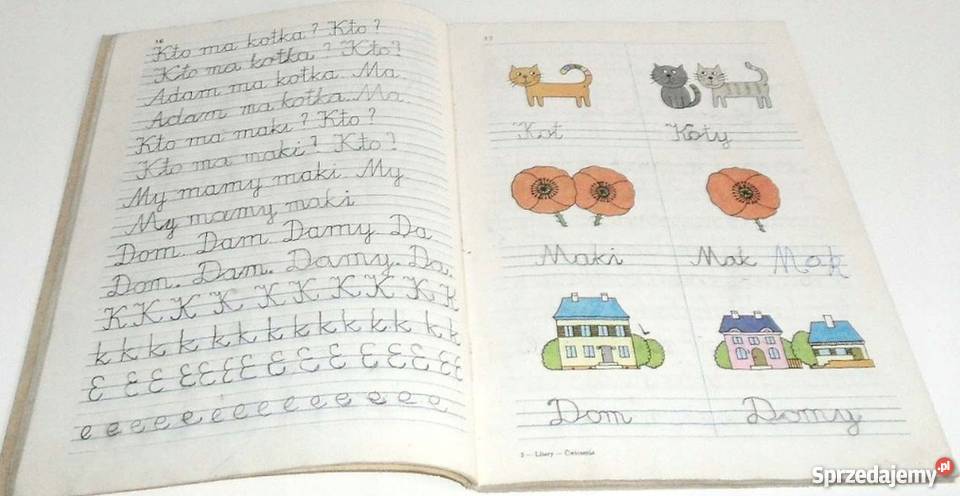 16
Kto ma kotka? Kto?
Kto ma kotka? Kto?
Adam ma kotka. Ma.
Adam ma kotka. Ma.
Kto ma maki? Kto?
Kto ma maki? Kto?
My mamy maki. My.
My mamy maki
Dom. Dam. Damy. Da
Dom. Dam. Damy. Da.
K K K K K K K K K K
k k k k k k k k k k k k k
E E E E E E E E E E E E E E
e e e e e e e e e e e e e e e
17
Kot Koty
Maki Mak Mak
Dom Domy
3 — Litery — Ćwiczenia
Sprzedajemy.pl